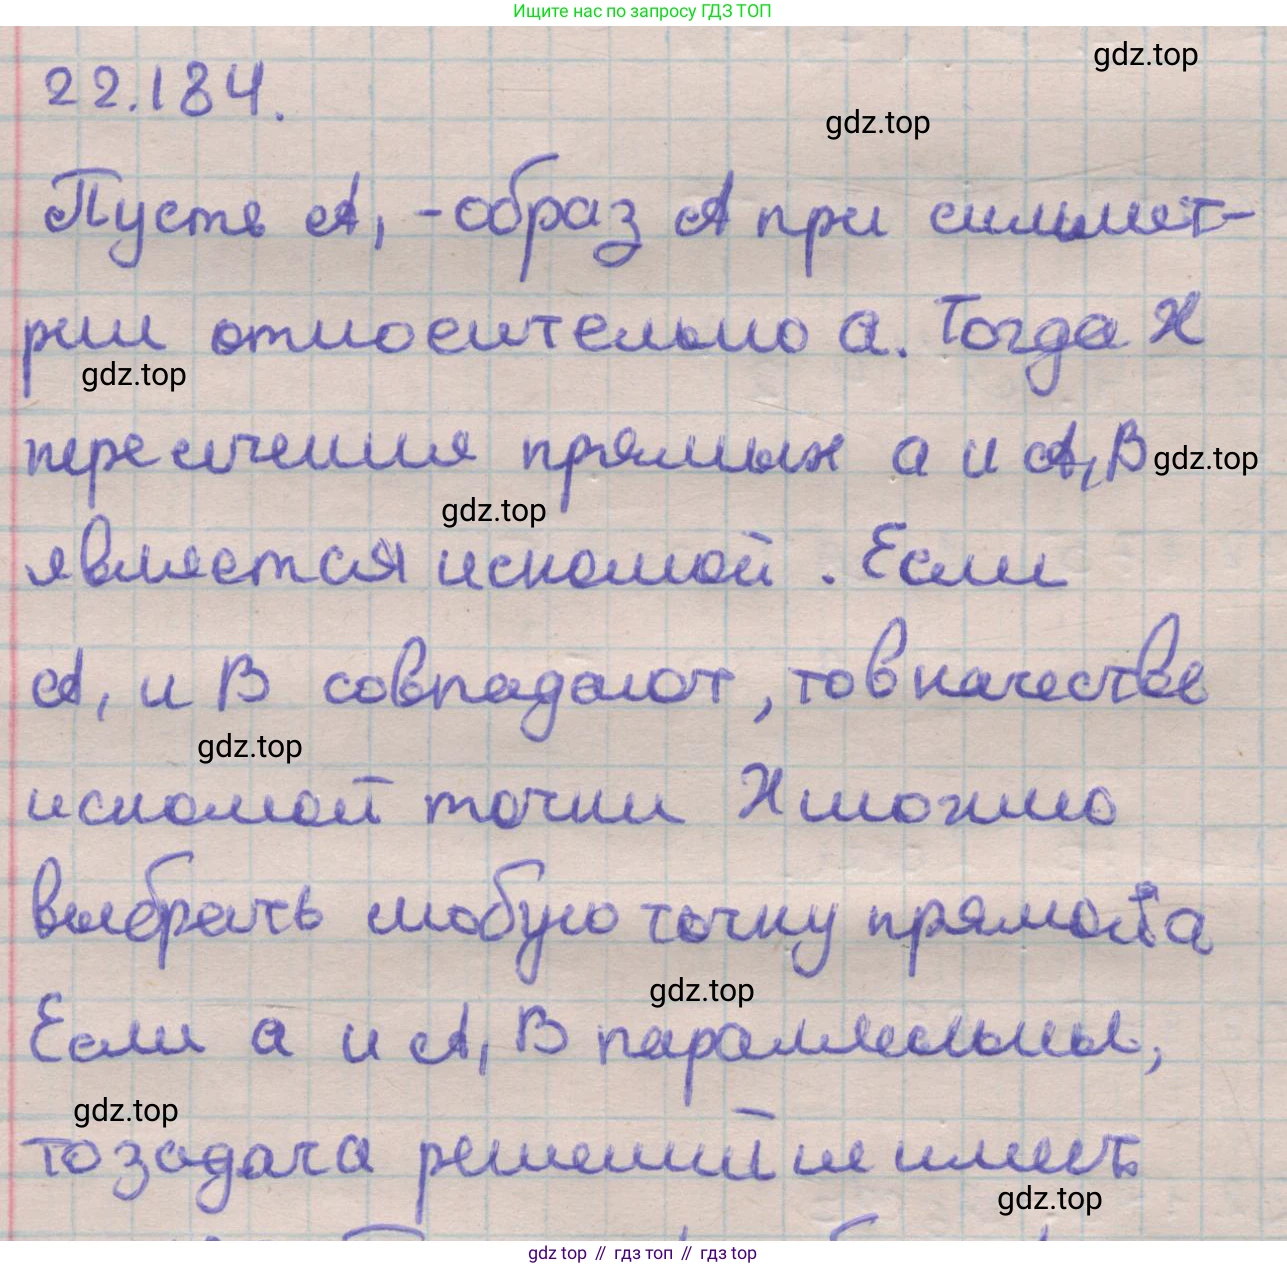 Ищите нас по запросу ГДЗ ТОП
gdz.top
22.184.
gdz.top
Пусть A₁ - образ A при симмет-
рии относительно a. Тогда X
gdz.top
пересечения прямых a и A₁B
gdz.top
gdz.top
является искомой. Если
A₁ и B совпадают, то в качестве
gdz.top
искомой точки X можно
выбрать любую точку прямой a
gdz.top
Если a и A₁B параллельны,
gdz.top
то задача решений не имеет
gdz.top
gdz top // гдз топ // гдз top